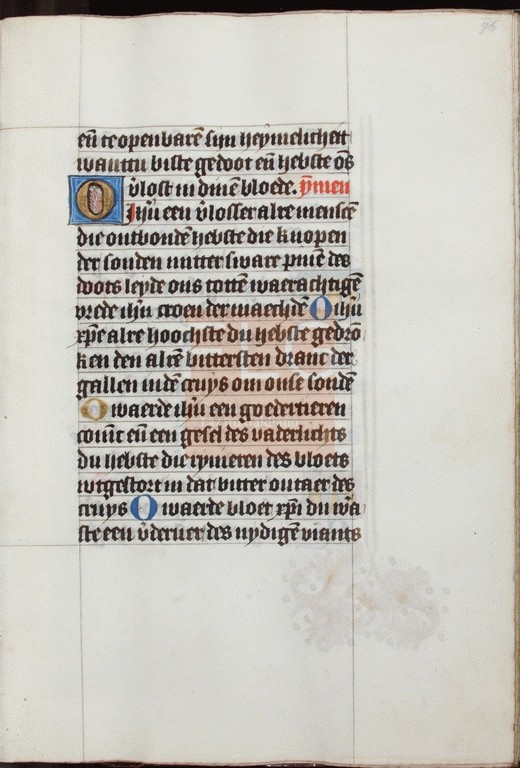 75
eñ te openbarē sijn heymelicheit
wanttu biste gedoot eñ hebste ōs
v̄lost in dinē bloede. ymen
O ihū een v̄losser alre menscē
die ontbondē hebste die knopen
der sonden mitter sware pinē des
doots leyde ons tottē waerachtigē
vrede ihū croen der maechdē O ihū
xp̄e alre hoochste du hebste gedrō
ken den alrē bittersten dranc der
gallen indē cruys om onse sondē
O waerde ihū een goedertieren
coninc eñ een gesel des vaderlichts
du hebste die rymeren des bloets
wtgestort in dat bitter outaer des
cruys O waerde bloet xp̄i du wa
ste een v̄deruer des nydigē viants